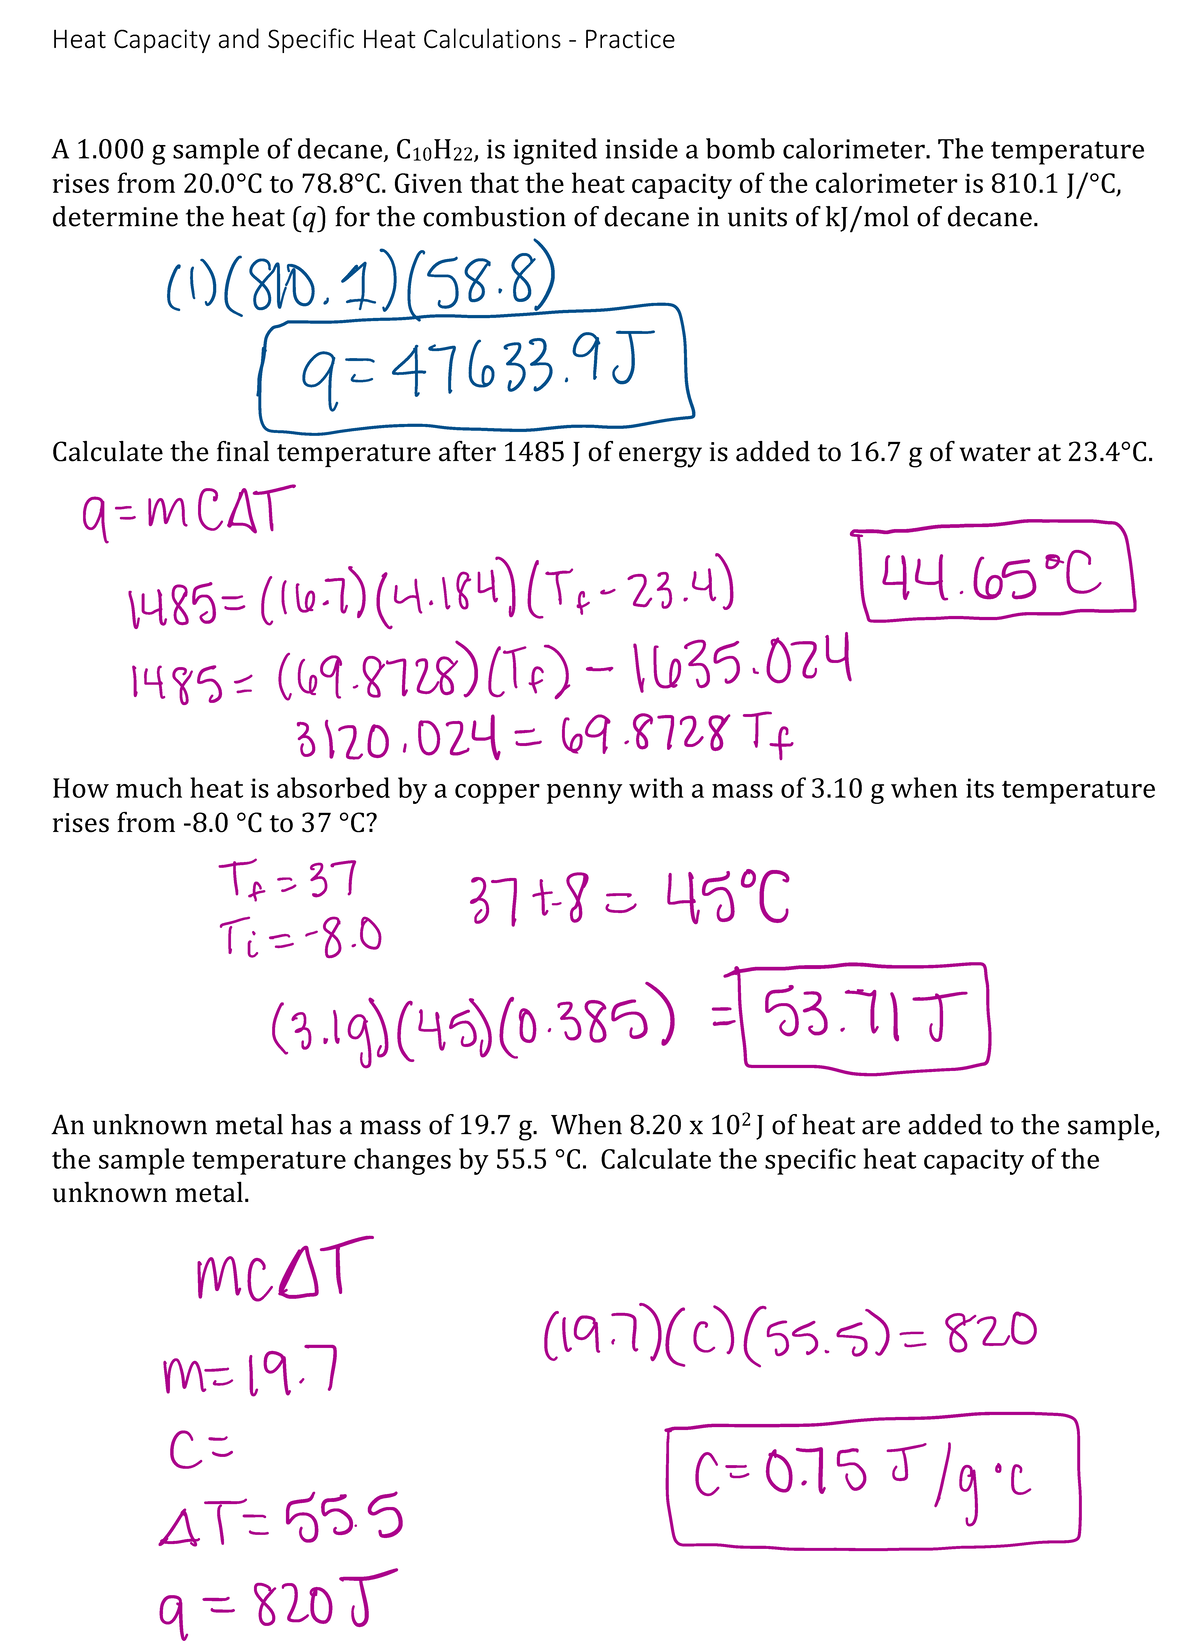 Heat Capacity and Specific Heat Calculations - Practice
A 1.000 g sample of decane, C₁₀H₂₂, is ignited inside a bomb calorimeter. The temperature
rises from 20.0°C to 78.8°C. Given that the heat capacity of the calorimeter is 810.1 J/°C,
determine the heat (q) for the combustion of decane in units of kJ/mol of decane.
(1)(810.1)(58.8)
q=47633.9J
Calculate the final temperature after 1485 J of energy is added to 16.7 g of water at 23.4°C.
q=mCΔT
44.65°C
1485=(16.7)(4.184)(Tf-23.4)
1485=(69.8728)(Tf)-1635.024
3120.024=69.8728 Tf
How much heat is absorbed by a copper penny with a mass of 3.10 g when its temperature
rises from -8.0 °C to 37 °C?
Tf=37
37+-8=45°C
Ti=-8.0
(3.1g)(45)(0.385) = 53.71J
An unknown metal has a mass of 19.7 g.  When 8.20 x 10² J of heat are added to the sample,
the sample temperature changes by 55.5 °C.  Calculate the specific heat capacity of the
unknown metal.
mcΔT
(19.7)(c)(55.5)=820
m=19.7
C=
C=0.75 J/g°c
ΔT=55.5
q=820J